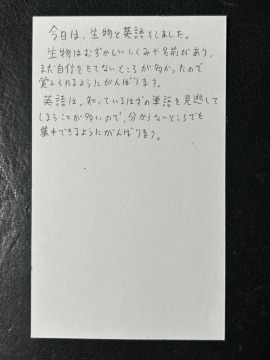 今日は、生物と英語をしました。
生物はむずかしいしくみや名前があり、
まだ自信をもてないところが多かったので
覚えられるようにがんばります。
英語は、知っているはずの単語を見逃して
しまうことが多いので、分からないところでも
集中できるようにがんばります。